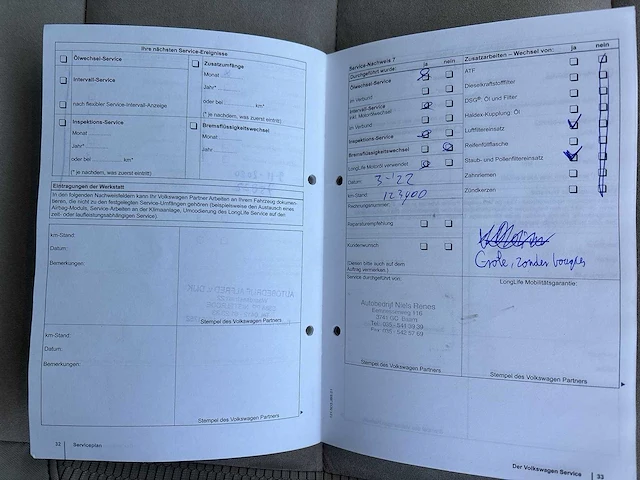 Ihre nächsten Service-Ereignisse
Ölwechsel-Service
Intervall-Service
nach flexibler Service-Intervall-Anzeige
Zusatzumfänge
Monat
Jahr*
oder bei km*
(* je nachdem, was zuerst eintritt)
Inspektions-Service
Monat
Jahr*
oder bei km*
(* je nachdem, was zuerst eintritt)
Bremsflüssigkeitswechsel
Monat
Jahr
Eintragungen der Werkstatt
In den folgenden Nachweisfeldern kann Ihr Volkswagen Partner Arbeiten an Ihrem Fahrzeug dokumen-
tieren, die nicht zu den festgelegten Service-Umfängen gehören (beispielsweise den Austausch eines
Airbag-Moduls, Service-Arbeiten an der Klimaanlage, Umcodierung des LongLife Service auf den
zeit- oder laufleistungsabhängigen Service).
km-Stand:
Datum:
Bemerkungen:
Stempel des Volkswagen Partners
km-Stand:
Datum:
Bemerkungen:
Stempel des Volkswagen Partners
32 Serviceplan
Service-Nachweis 7
Durchgeführt wurde: ja nein
Ölwechsel-Service
im Verbund
Intervall-Service
inkl. Motorölwechsel
im Verbund
Inspektions-Service
Bremsflüssigkeitswechsel
LongLife Motoröl verwendet
Datum: 3-'22
km-Stand: 123400
Rechnungsnummer:
Reparaturempfehlung
Kundenwunsch
(Jeden bitte auch auf dem
Auftrag vermerken.)
Service durchgeführt von:
Autobedrijf Niels Renes
3741 GC Baarn
Tel. 035 - 541 39 39
Fax 035 - 542 57 69
Stempel des Volkswagen Partners
Zusatzarbeiten – Wechsel von: ja nein
ATF
Dieselkraftstofffilter
DSG®: Öl und Filter
Haldex-Kupplung: Öl
Luftfiltereinsatz
Reifenfüllflasche
Staub- und Pollenfiltereinsatz
Zahnriemen
Zündkerzen
Grote, zonder bougies
LongLife Mobilitätsgarantie:
Stempel des Volkswagen Partners
Der Volkswagen Service 33